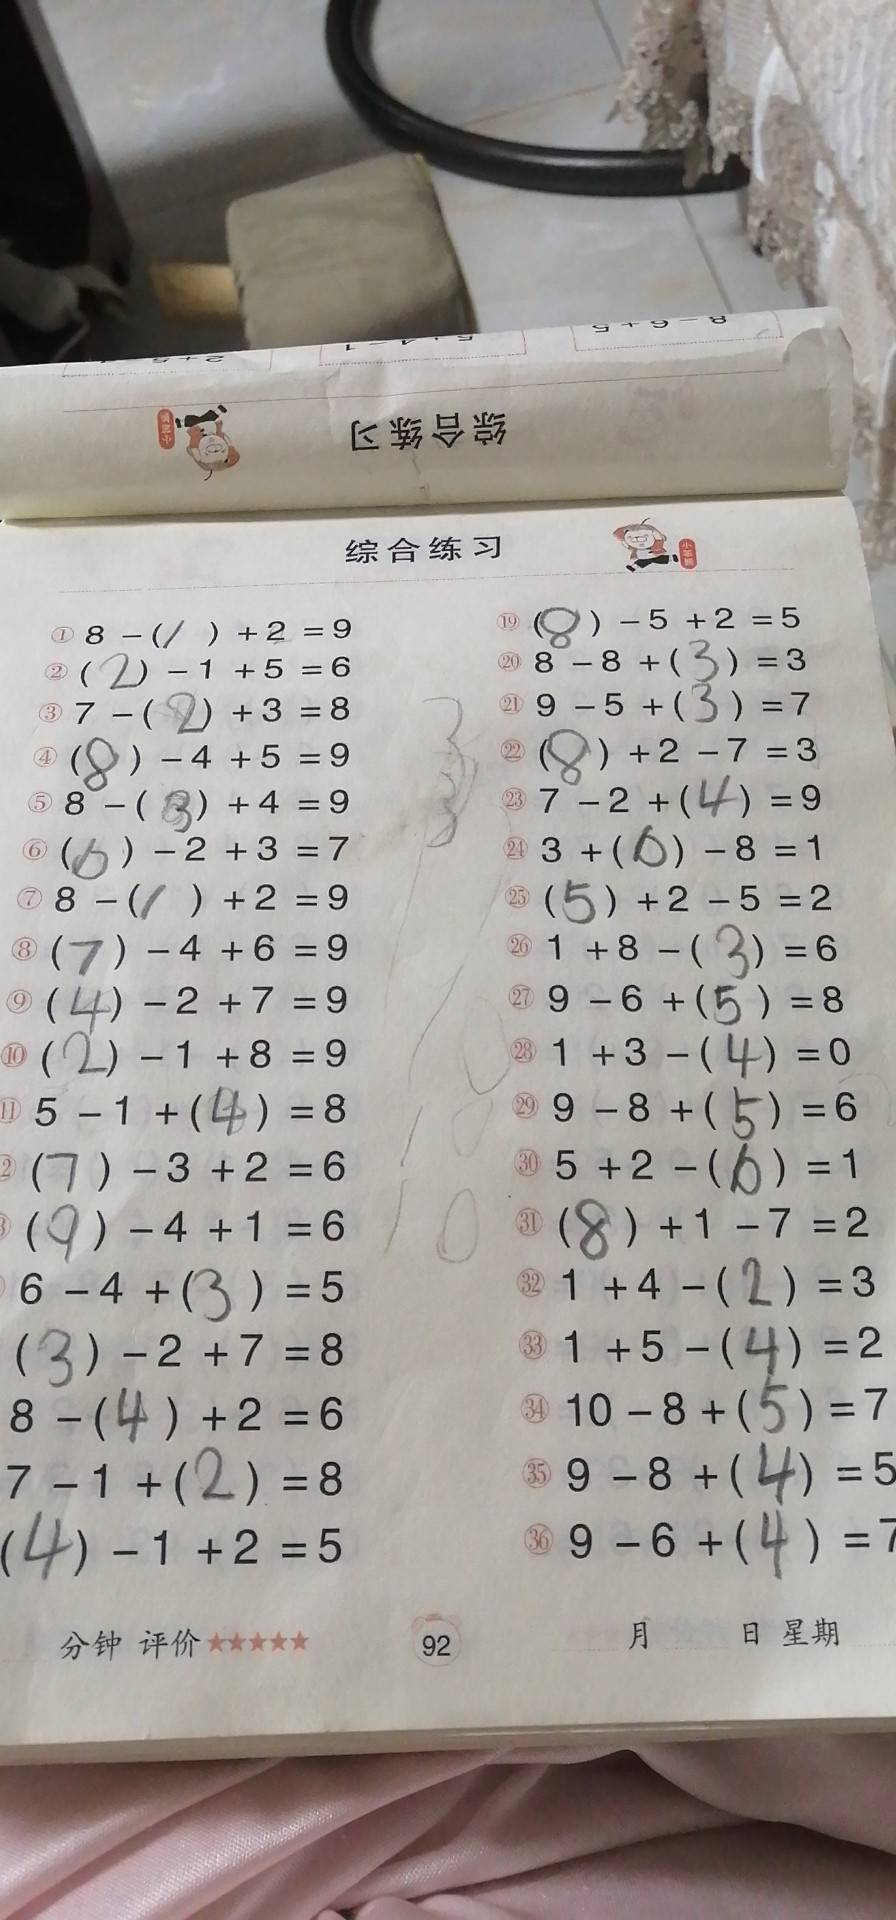 8 - 6 + 5
综合练习
综合练习
小笨熊
① 8 - (1) + 2 = 9
② (2) - 1 + 5 = 6
③ 7 - (2) + 3 = 8
④ (8) - 4 + 5 = 9
⑤ 8 - (3) + 4 = 9
⑥ (6) - 2 + 3 = 7
⑦ 8 - (1) + 2 = 9
⑧ (7) - 4 + 6 = 9
⑨ (4) - 2 + 7 = 9
⑩ (2) - 1 + 8 = 9
⑪ 5 - 1 + (4) = 8
(7) - 3 + 2 = 6
(9) - 4 + 1 = 6
6 - 4 + (3) = 5
(3) - 2 + 7 = 8
8 - (4) + 2 = 6
7 - 1 + (2) = 8
(4) - 1 + 2 = 5
⑲ (8) - 5 + 2 = 5
⑳ 8 - 8 + (3) = 3
㉑ 9 - 5 + (3) = 7
㉒ (8) + 2 - 7 = 3
㉓ 7 - 2 + (4) = 9
㉔ 3 + (6) - 8 = 1
㉕ (5) + 2 - 5 = 2
㉖ 1 + 8 - (3) = 6
㉗ 9 - 6 + (5) = 8
㉘ 1 + 3 - (4) = 0
㉙ 9 - 8 + (5) = 6
㉚ 5 + 2 - (6) = 1
㉛ (8) + 1 - 7 = 2
㉜ 1 + 4 - (2) = 3
㉝ 1 + 5 - (4) = 2
㉞ 10 - 8 + (5) = 7
㉟ 9 - 8 + (4) = 5
㊱ 9 - 6 + (4) = 7
分钟 评价★★★★★
92
月 日 星期